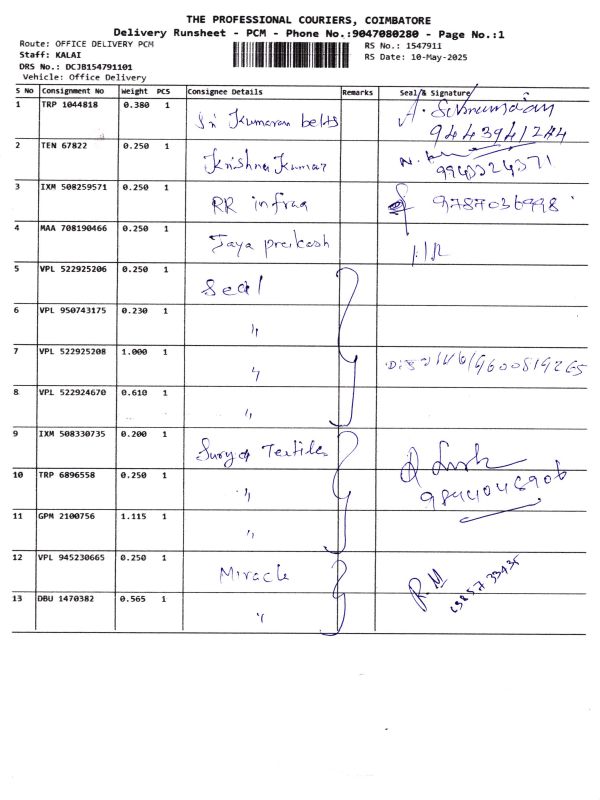 THE PROFESSIONAL COURIERS, COIMBATORE
Delivery Runsheet - PCM - Phone No.:9047080280 - Page No.:1
Route: OFFICE DELIVERY PCM RS No.: 1547911
Staff: KALAI RS Date: 10-May-2025
DRS No.: DCJB154791101
Vehicle: Office Delivery
S No Consignment No Weight PCS Consignee Details Remarks Seal & Signature
1 TRP 1044818 0.380 1 Sri Kumaran belts A.
9443941244
2 TEN 67822 0.250 1 Krishna Kumar N.
9943324371
3 IXM 508259571 0.250 1 RR infraa 9787036998
4 MAA 708190466 0.250 1 Jaya prakash
5 VPL 522925206 0.250 1 Seal
6 VPL 950743175 0.230 1 "
7 VPL 522925208 1.000 1 " 9600819265
8 VPL 522924670 0.610 1 "
9 IXM 508330735 0.200 1 Surya Textiles
10 TRP 6896558 0.250 1 " 9844048906
11 GPM 2100756 1.115 1 "
12 VPL 945230665 0.250 1 Miracle R.M
13 DBU 1470382 0.565 1 "